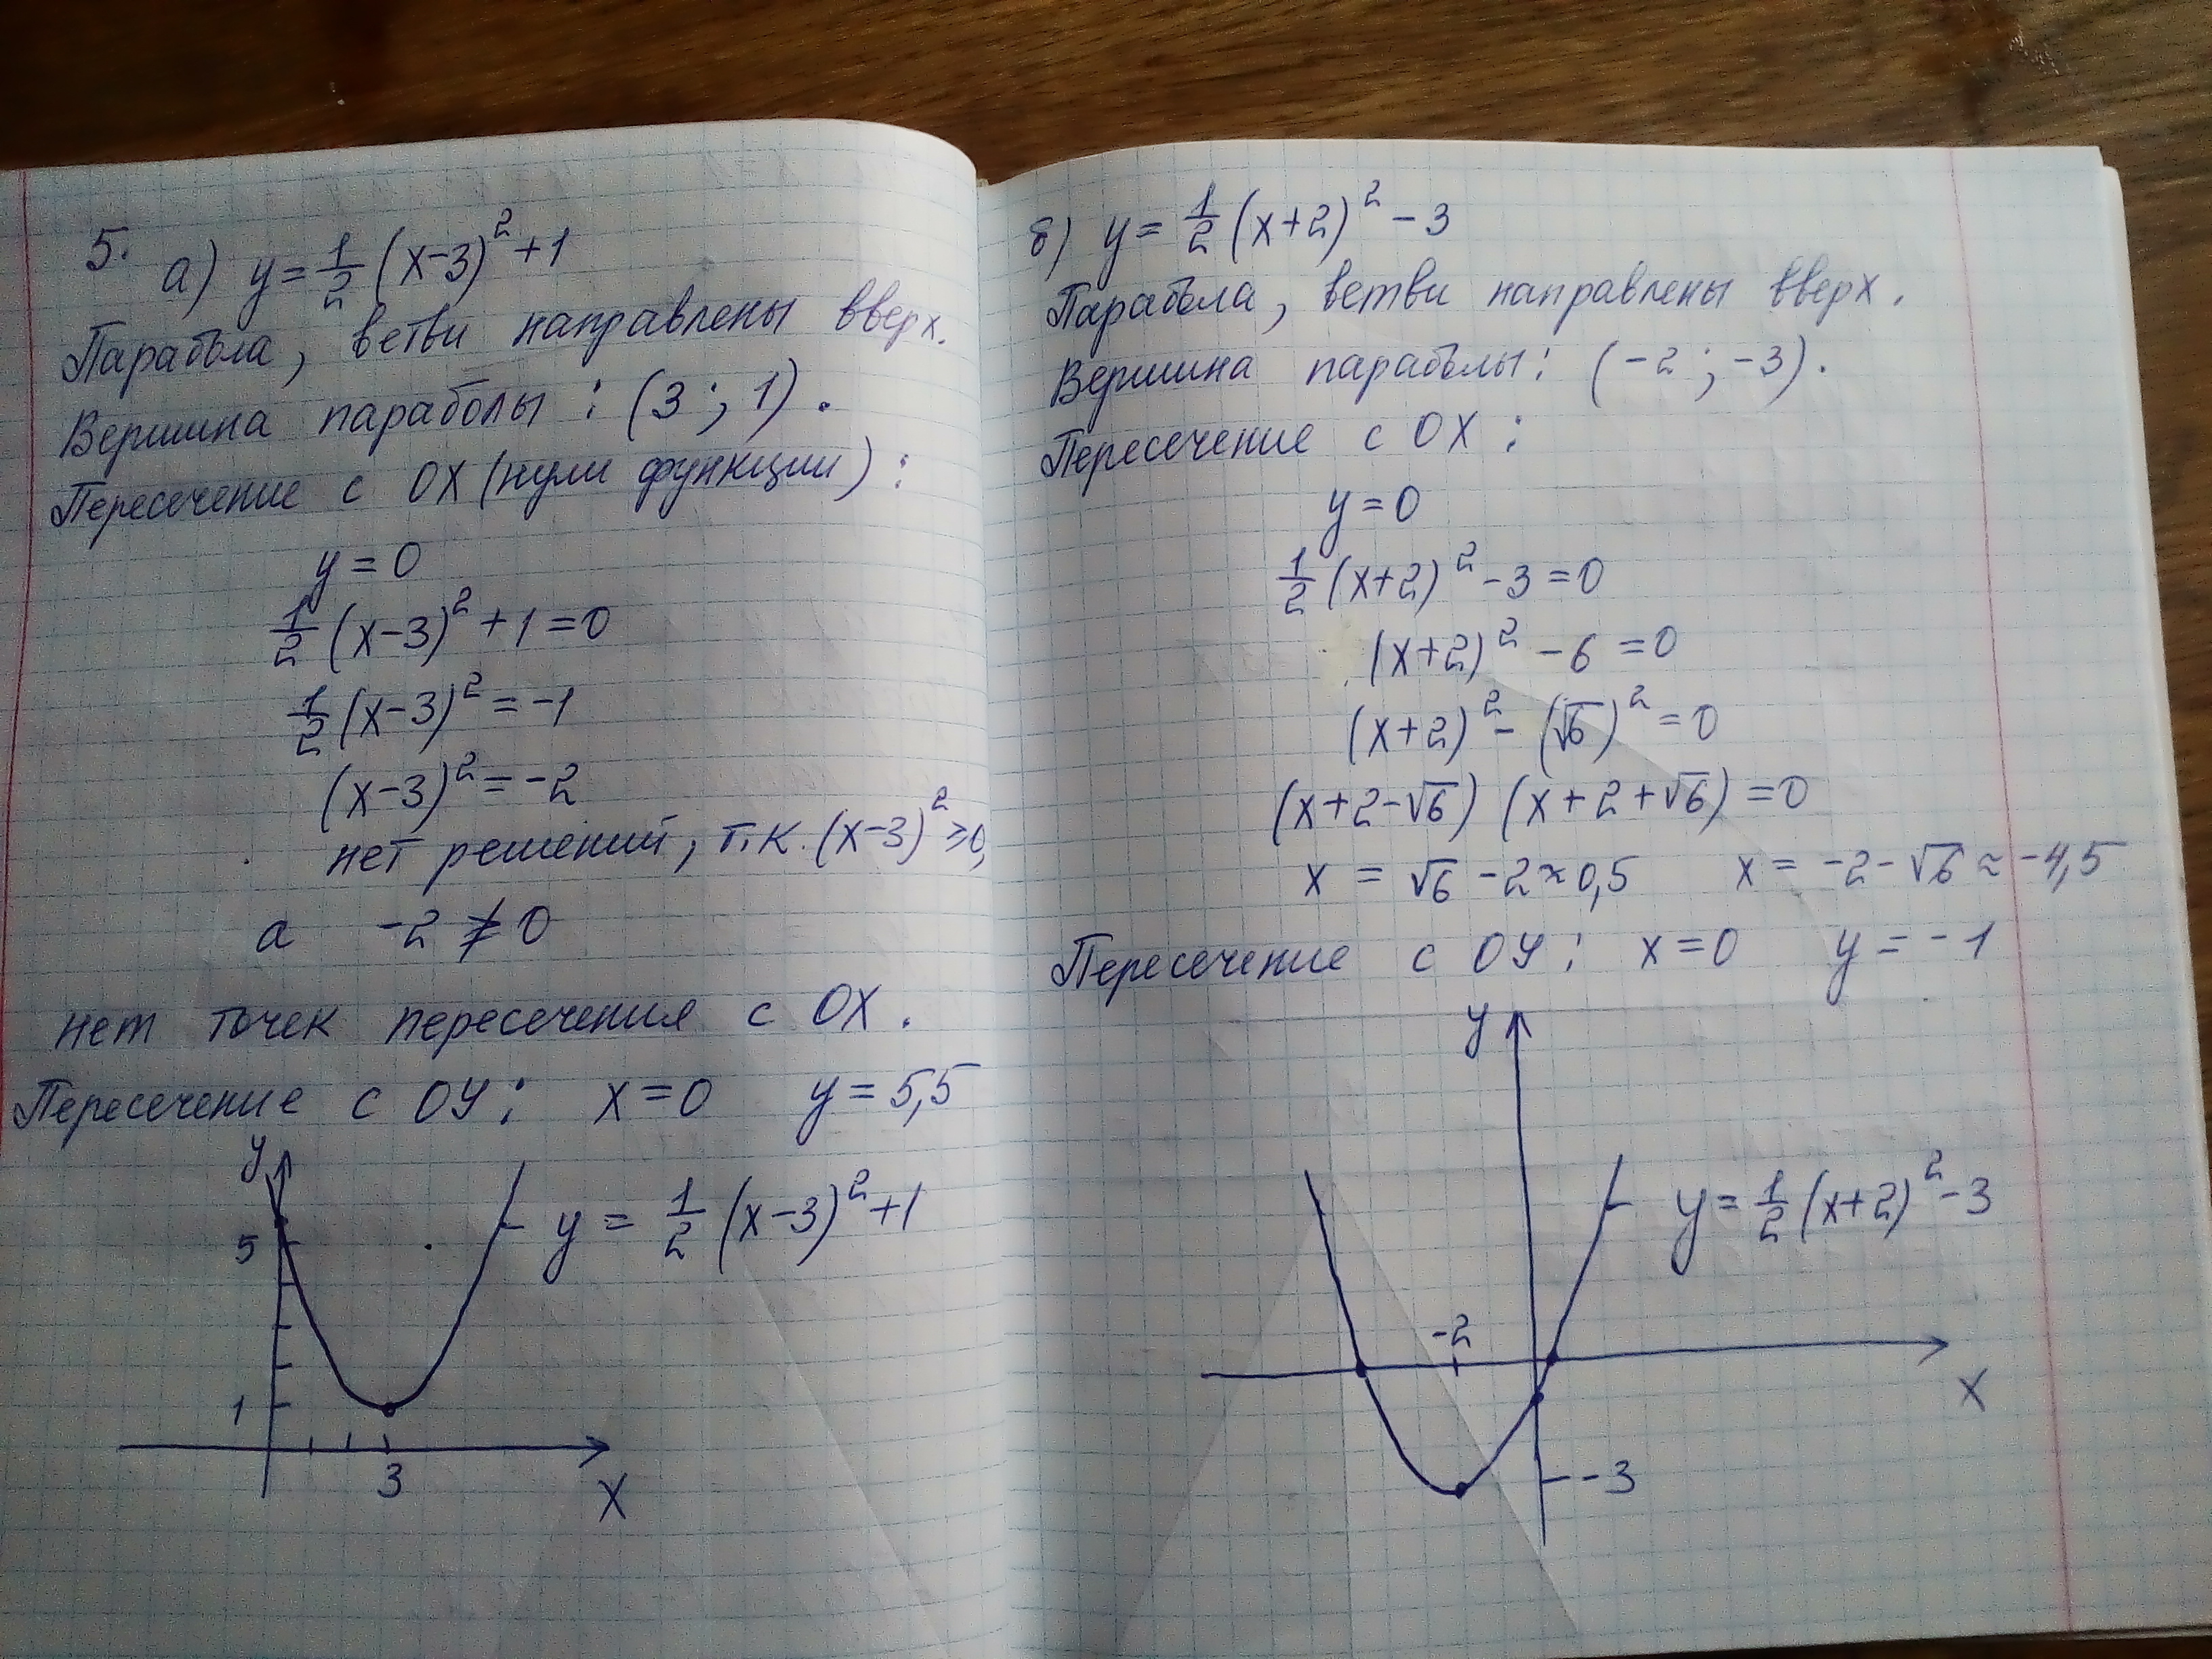 5. а) y = 1/2 (x-3)² + 1
Парабола, ветви направлены вверх.
Вершина параболы : (3 ; 1) .
Пересечение с OX (нули функции) :
y = 0
1/2 (x-3)² + 1 = 0
1/2 (x-3)² = -1
(x-3)² = -2
нет решений, т.к. (x-3)² ≥ 0,
а -2 ≱ 0
нет точек пересечения с OX .
Пересечение с OY : x = 0 y = 5,5
y
5
y = 1/2 (x-3)² + 1
1
3
X
б) y = 1/2 (x+2)² - 3
Парабола, ветви направлены вверх.
Вершина параболы : (-2 ; -3) .
Пересечение с OX :
y = 0
1/2 (x+2)² - 3 = 0
(x+2)² - 6 = 0
(x+2)² - (√6)² = 0
(x+2-√6) (x+2+√6) = 0
x = √6 - 2 ≈ 0,5 x = -2 - √6 ≈ -4,5
Пересечение с OY : x = 0 y = -1
y
y = 1/2 (x+2)² - 3
-2
X
-3